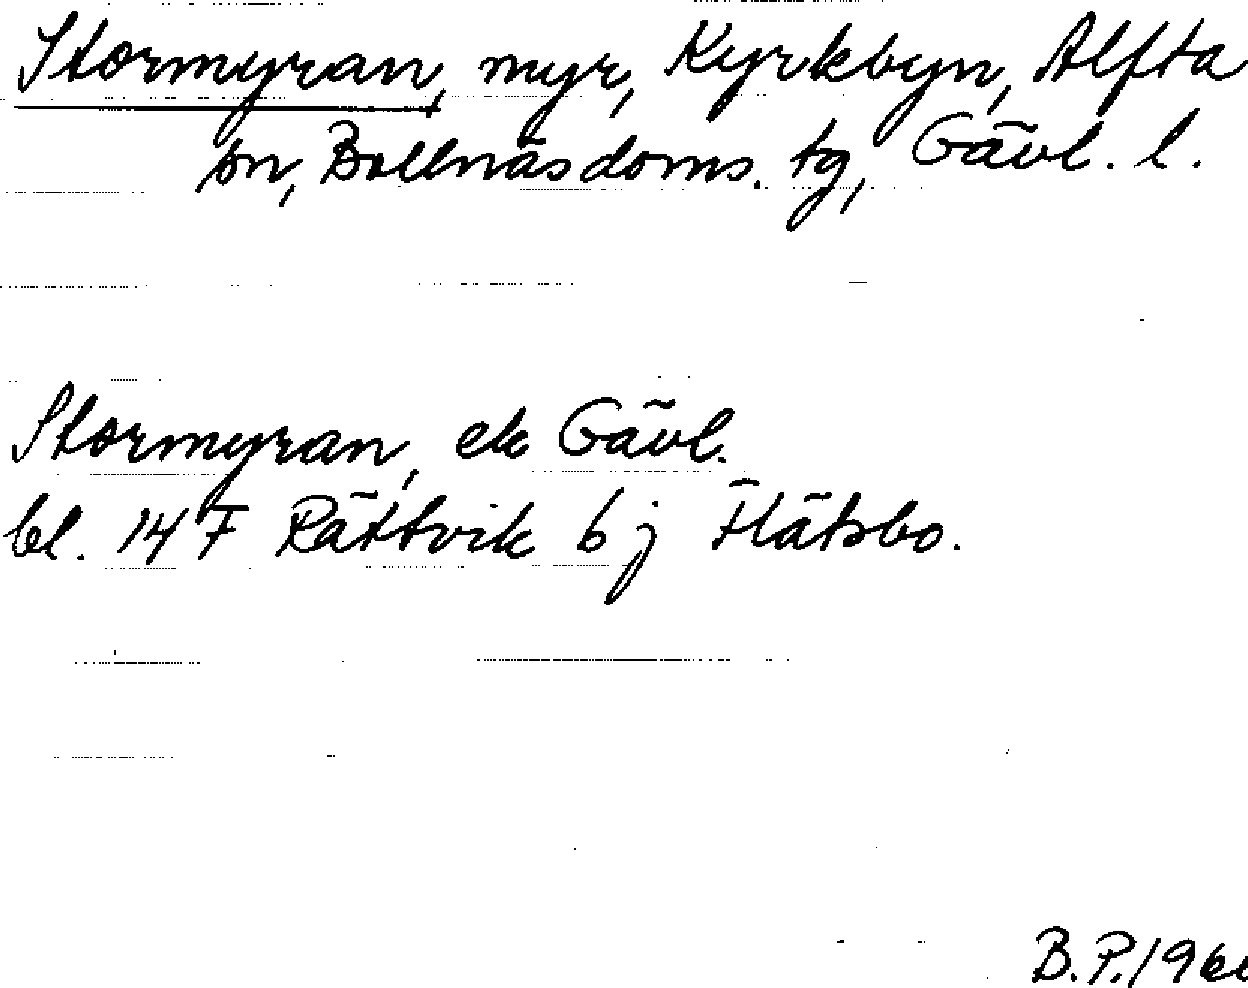 Stormyran, myr, Kyrkbyn, Alfta
sn, Bollnäs doms. tg, Gävl. l.
Stormyran, ek Gävl.
bl. 14 F Rättvik 6 j Flätsbo.
B.P. 196